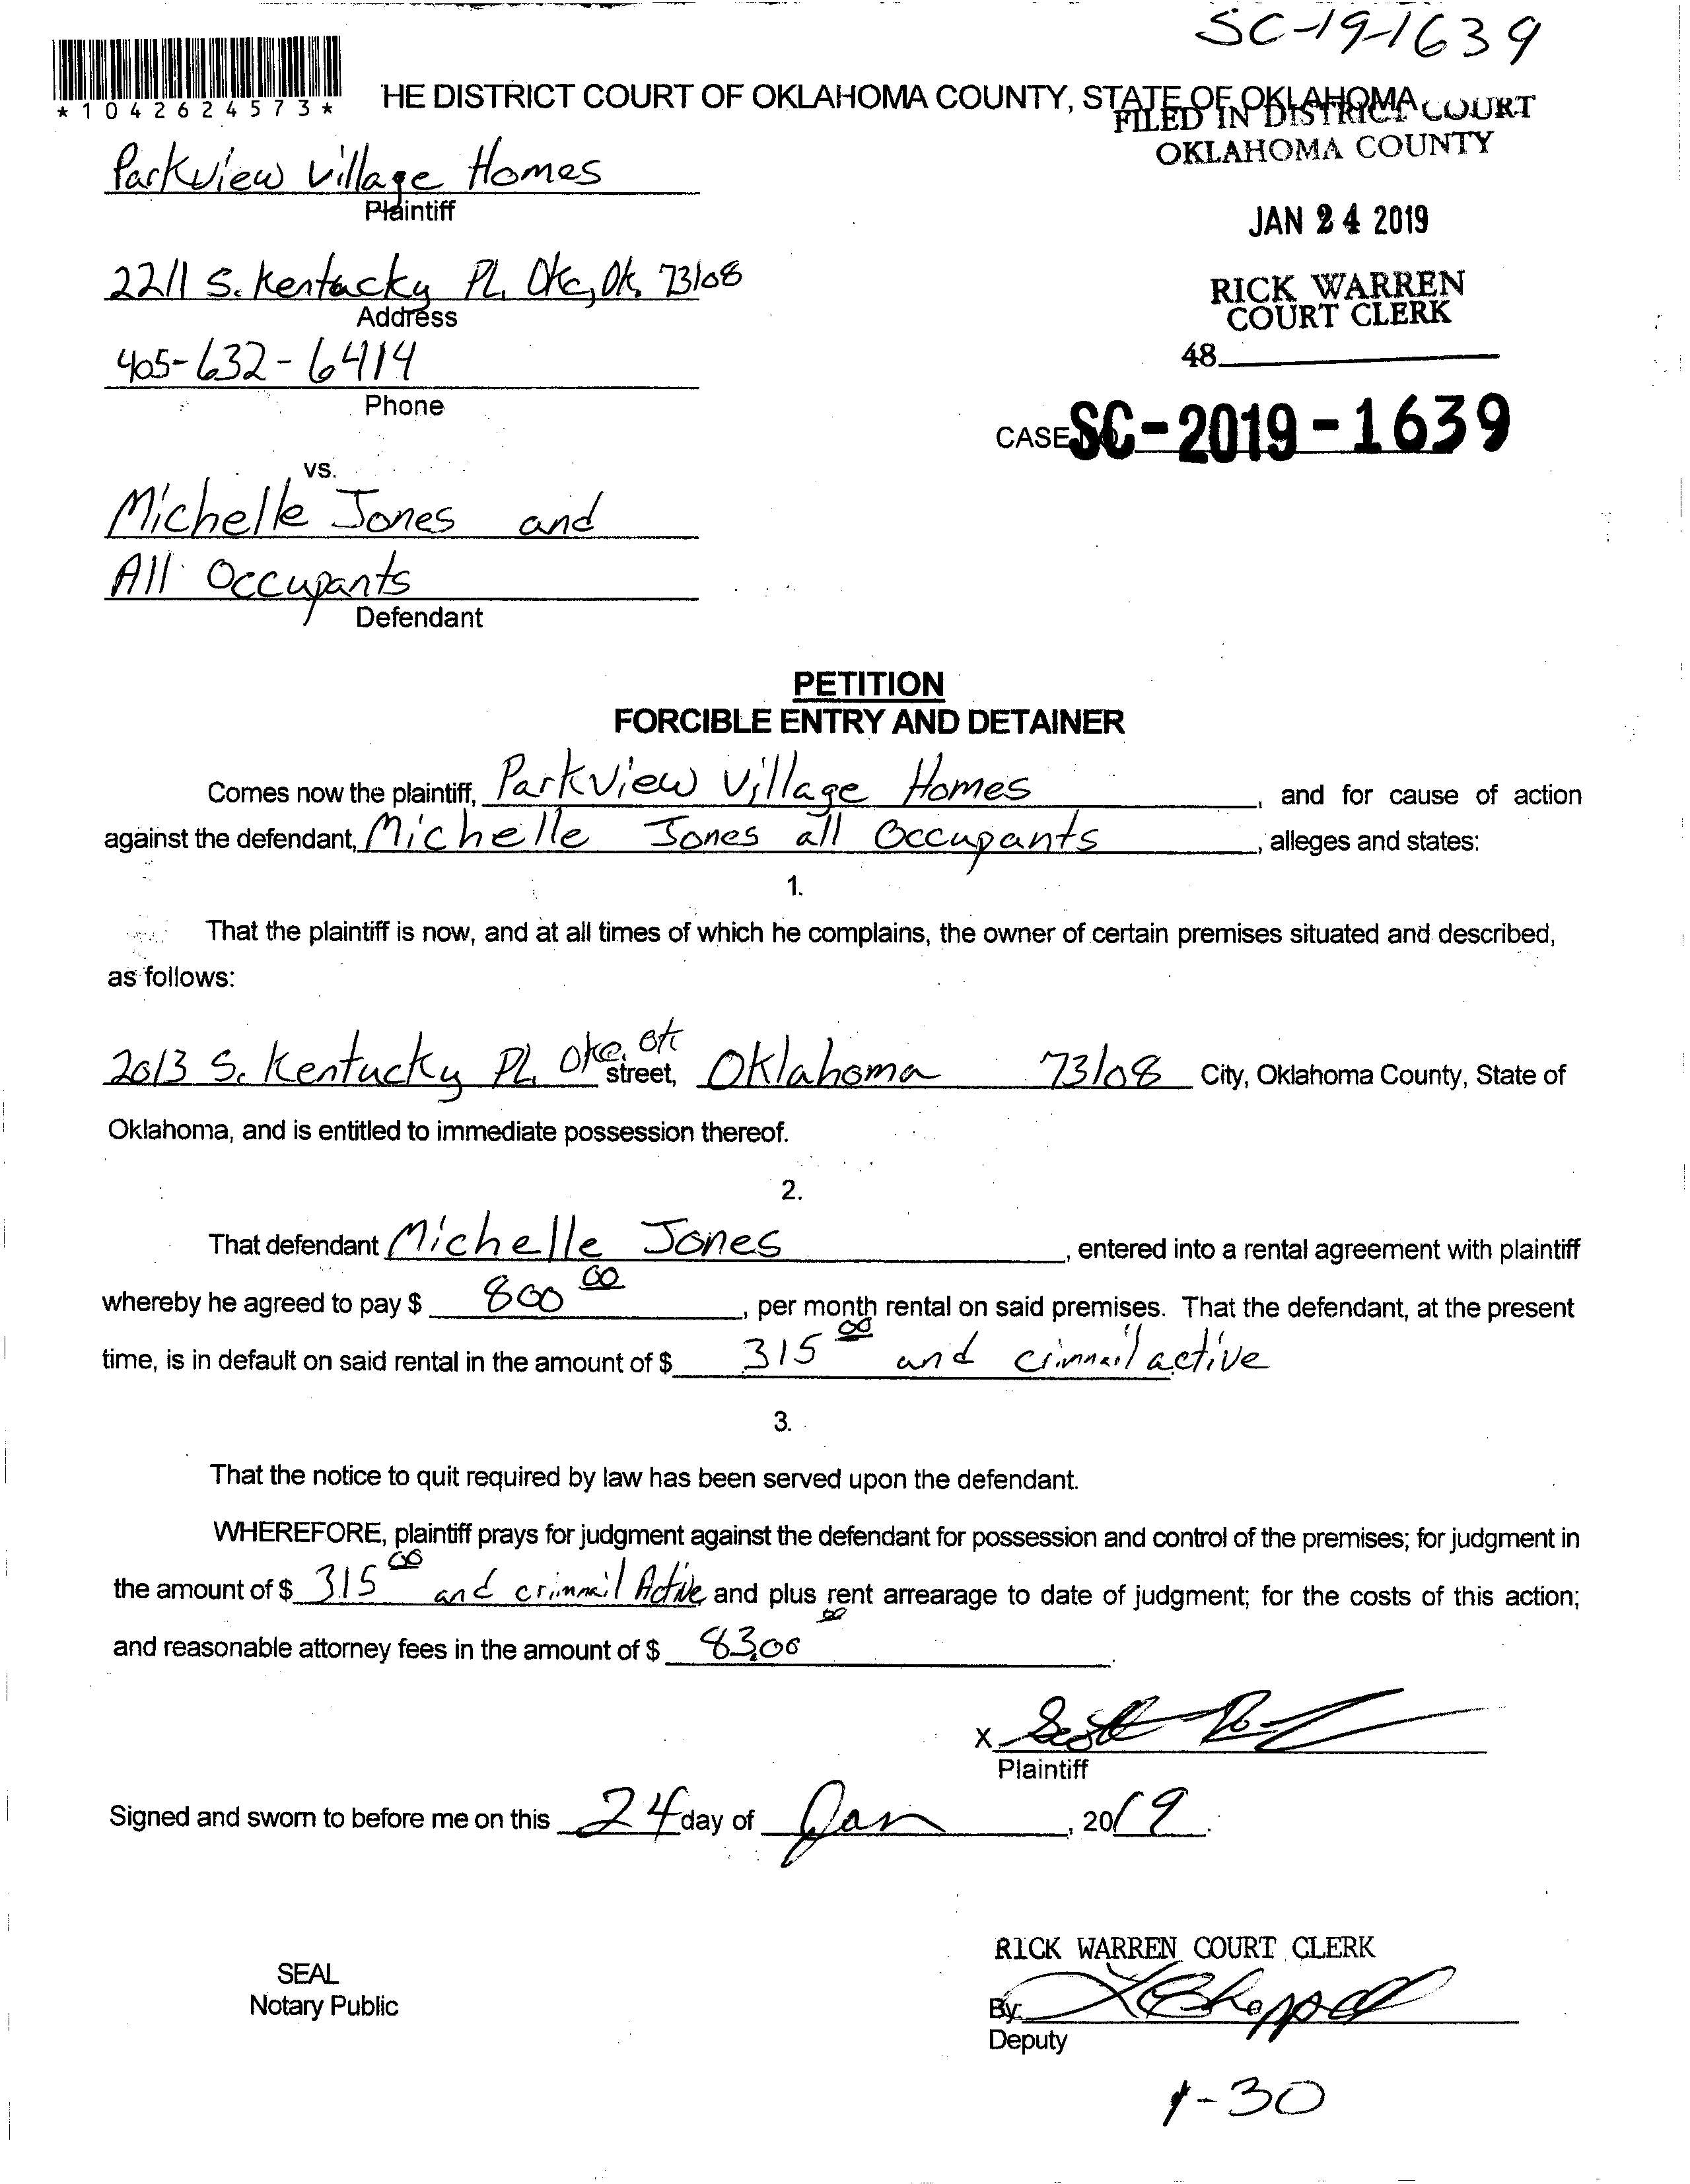 SC-19-1639
*1042624573*
HE DISTRICT COURT OF OKLAHOMA COUNTY, STATE OF OKLAHOMA
FILED IN DISTRICT COURT
OKLAHOMA COUNTY
Parkview Village Homes
Plaintiff
JAN 24 2019
2211 S. Kentucky PL. Okc, Ok. 73108
Address
RICK WARREN
COURT CLERK
405-632-6414
48
Phone
CASE NO. SC-2019-1639
vs.
Michelle Jones and
All Occupants
Defendant
PETITION
FORCIBLE ENTRY AND DETAINER
Comes now the plaintiff, Parkview Village Homes, and for cause of action
against the defendant, Michelle Jones all Occupants, alleges and states:
1.
That the plaintiff is now, and at all times of which he complains, the owner of certain premises situated and described,
as follows:
2013 S. Kentucky PL. Okc. Ok street, Oklahoma 73108 City, Oklahoma County, State of
Oklahoma, and is entitled to immediate possession thereof.
2.
That defendant Michelle Jones, entered into a rental agreement with plaintiff
whereby he agreed to pay $ 800 00, per month rental on said premises. That the defendant, at the present
time, is in default on said rental in the amount of $ 315 00 and active
3.
That the notice to quit required by law has been served upon the defendant.
WHEREFORE, plaintiff prays for judgment against the defendant for possession and control of the premises; for judgment in
the amount of $ 315 00 and Active and plus rent arrearage to date of judgment; for the costs of this action;
and reasonable attorney fees in the amount of $ 83.00
X
Plaintiff
Signed and sworn to before me on this 24 day of Jan, 2019.
RICK WARREN COURT CLERK
SEAL
Notary Public
By:
Deputy
1-30